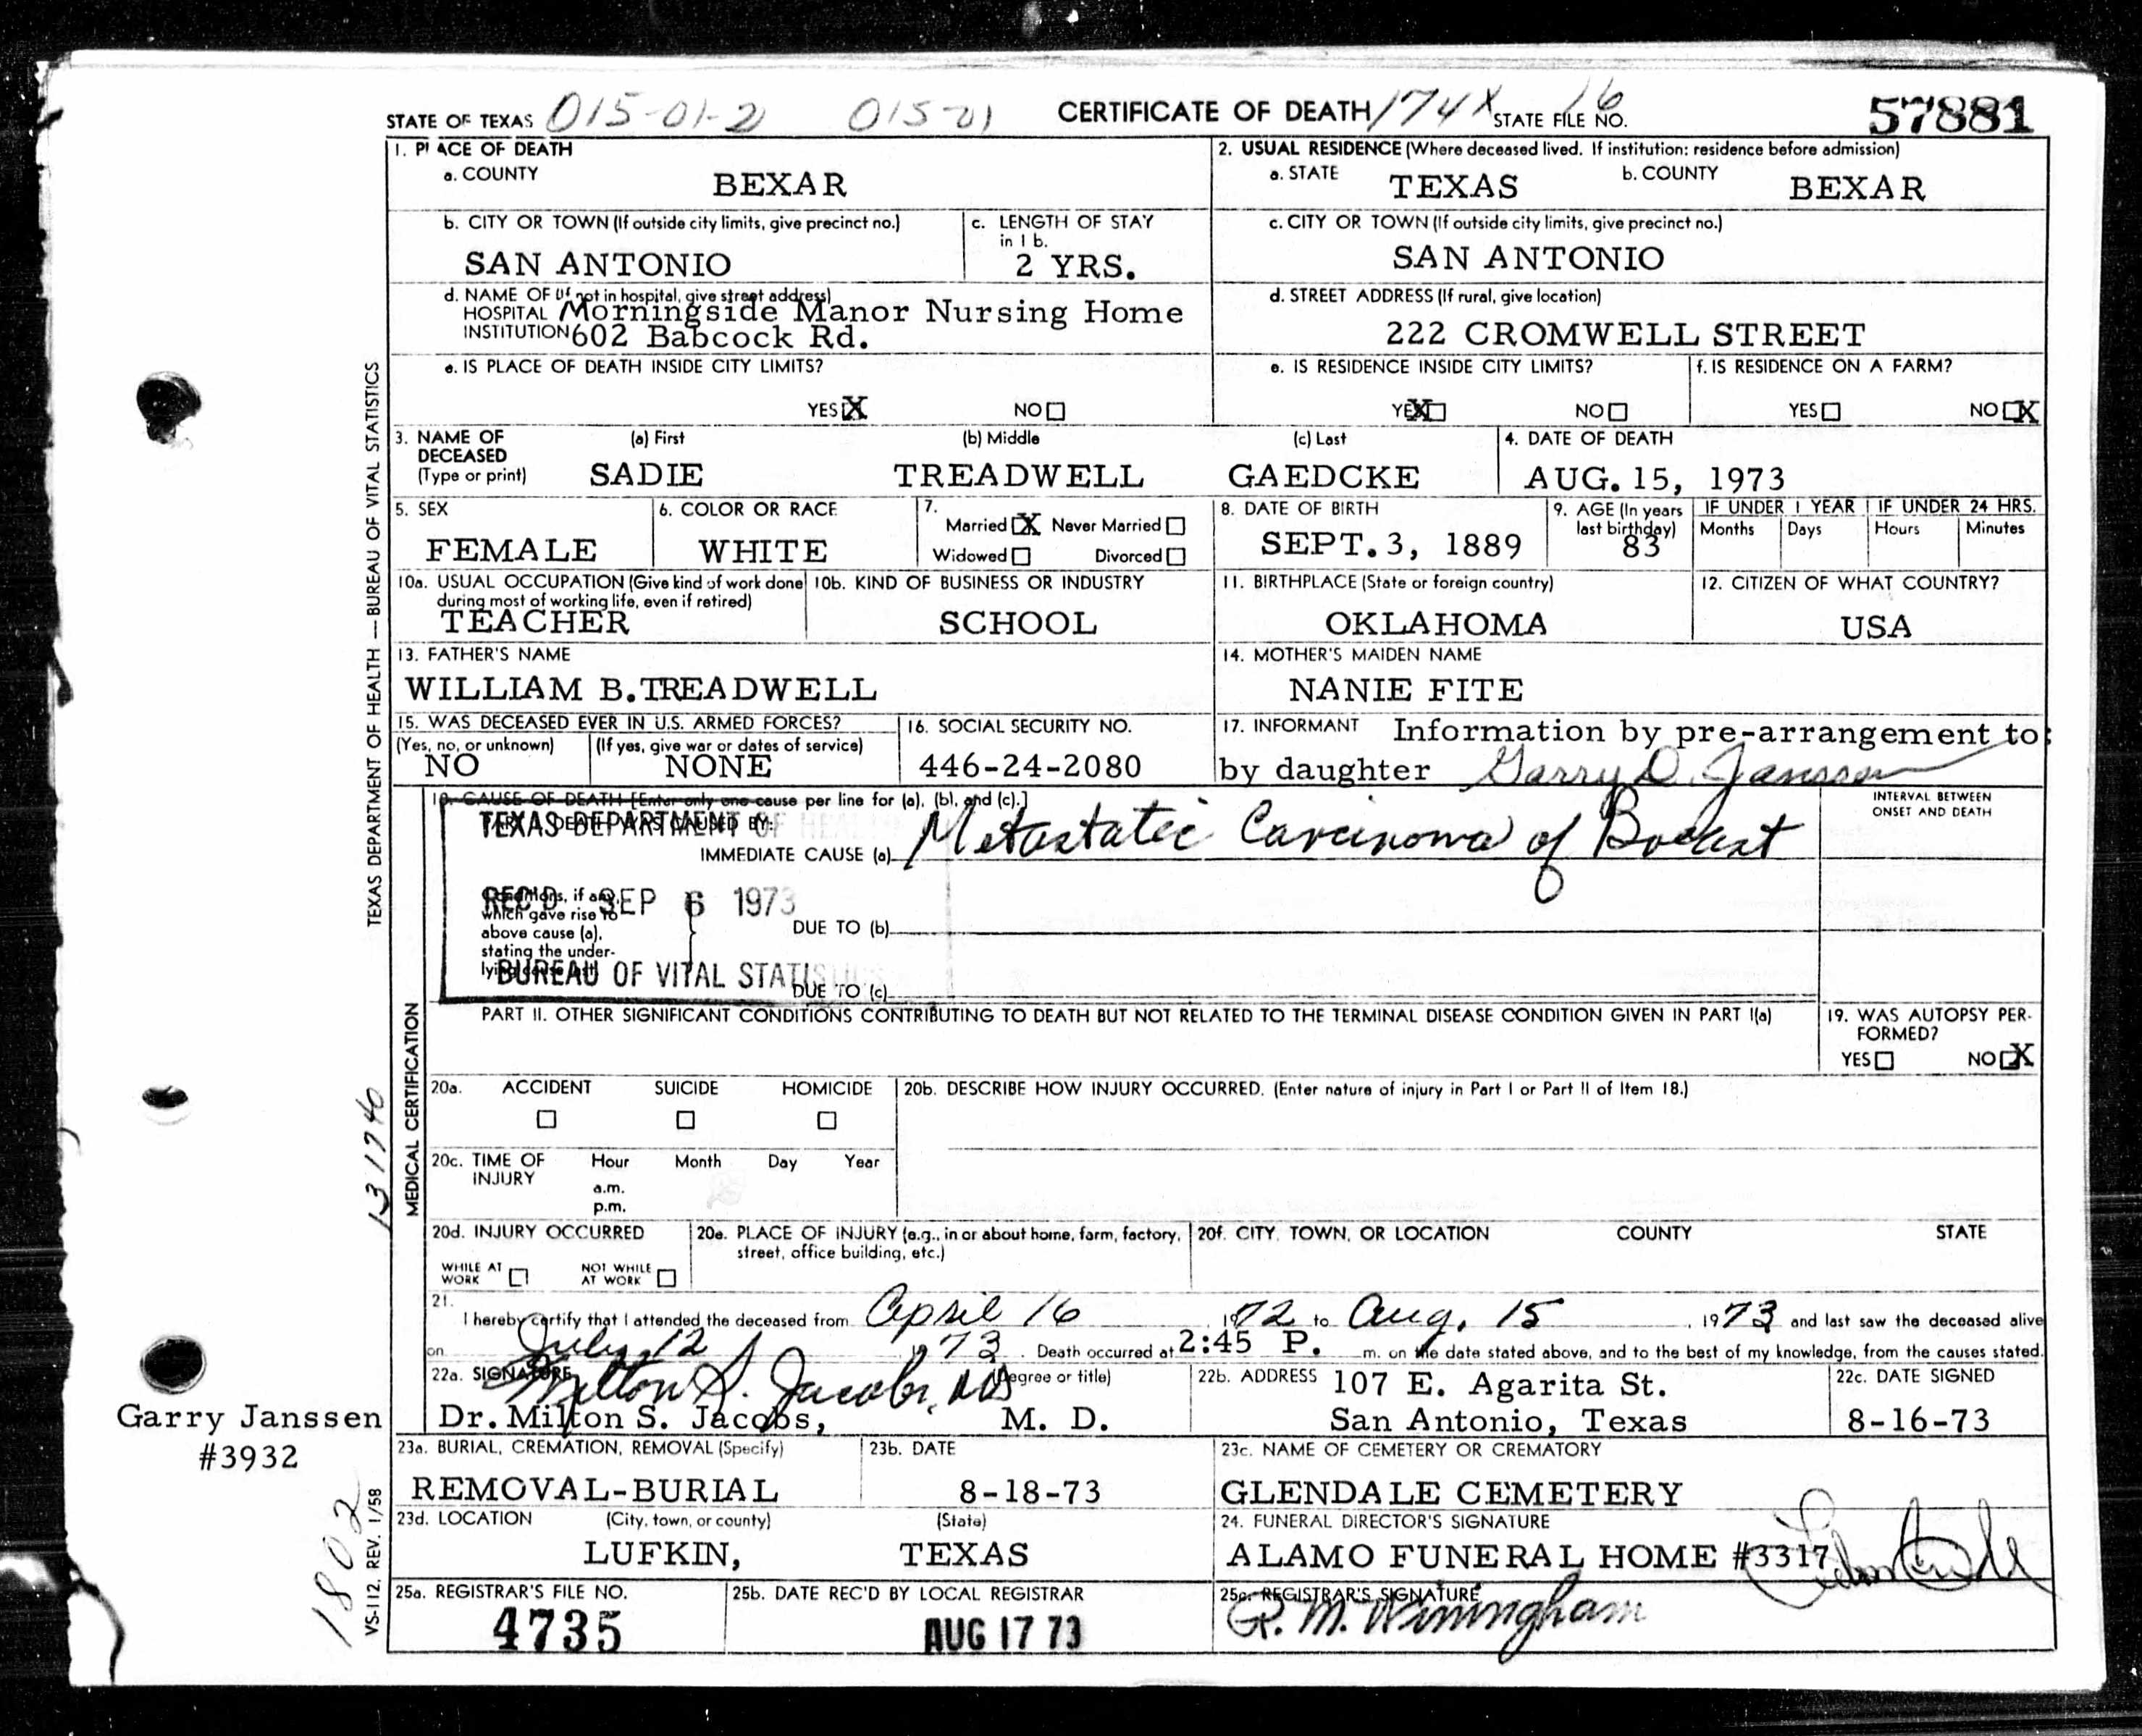 STATE OF TEXAS 015-01-2 015-01 CERTIFICATE OF DEATH 174X STATE FILE NO. 16 57881
1. PLACE OF DEATH
a. COUNTY BEXAR
2. USUAL RESIDENCE (Where deceased lived. If institution: residence before admission)
a. STATE TEXAS b. COUNTY BEXAR
b. CITY OR TOWN (If outside city limits, give precinct no.) SAN ANTONIO
c. LENGTH OF STAY in 1 b. 2 YRS.
c. CITY OR TOWN (If outside city limits, give precinct no.) SAN ANTONIO
d. NAME OF (If not in hospital, give street address)
HOSPITAL Morningside Manor Nursing Home
INSTITUTION 602 Babcock Rd.
d. STREET ADDRESS (If rural, give location)
222 CROMWELL STREET
e. IS PLACE OF DEATH INSIDE CITY LIMITS?
YES X NO
e. IS RESIDENCE INSIDE CITY LIMITS?
YES X NO
f. IS RESIDENCE ON A FARM?
YES NO X
3. NAME OF DECEASED (Type or print)
(a) First (b) Middle (c) Last
SADIE TREADWELL GAEDCKE
4. DATE OF DEATH
AUG. 15, 1973
5. SEX
FEMALE
6. COLOR OR RACE
WHITE
7.
Married X Never Married
Widowed Divorced
8. DATE OF BIRTH
SEPT. 3, 1889
9. AGE (In years last birthday)
83
IF UNDER 1 YEAR IF UNDER 24 HRS.
Months Days Hours Minutes
10a. USUAL OCCUPATION (Give kind of work done during most of working life, even if retired)
TEACHER
10b. KIND OF BUSINESS OR INDUSTRY
SCHOOL
11. BIRTHPLACE (State or foreign country)
OKLAHOMA
12. CITIZEN OF WHAT COUNTRY?
USA
13. FATHER'S NAME
WILLIAM B. TREADWELL
14. MOTHER'S MAIDEN NAME
NANIE FITE
15. WAS DECEASED EVER IN U.S. ARMED FORCES?
(Yes, no, or unknown) (If yes, give war or dates of service)
NO NONE
16. SOCIAL SECURITY NO.
446-24-2080
17. INFORMANT Information by pre-arrangement to:
by daughter Garry D. Janssen
18. CAUSE OF DEATH [Enter only one cause per line for (a), (b), and (c).]
INTERVAL BETWEEN ONSET AND DEATH
TEXAS DEPARTMENT OF HEALTH
IMMEDIATE CAUSE (a) Metastatic Carcinoma of Breast
REC'D SEP 6 1973
Conditions, if any, which gave rise to above cause (a), stating the underlying cause last.
DUE TO (b)
BUREAU OF VITAL STATISTICS
DUE TO (c)
PART II. OTHER SIGNIFICANT CONDITIONS CONTRIBUTING TO DEATH BUT NOT RELATED TO THE TERMINAL DISEASE CONDITION GIVEN IN PART I(a)
19. WAS AUTOPSY PERFORMED?
YES NO X
20a. ACCIDENT SUICIDE HOMICIDE
20b. DESCRIBE HOW INJURY OCCURRED. (Enter nature of injury in Part I or Part II of Item 18.)
20c. TIME OF INJURY Hour Month Day Year
a.m.
p.m.
20d. INJURY OCCURRED
WHILE AT WORK NOT WHILE AT WORK
20e. PLACE OF INJURY (e.g., in or about home, farm, factory, street, office building, etc.)
20f. CITY, TOWN, OR LOCATION COUNTY STATE
21.
I hereby certify that I attended the deceased from April 16 1972 to Aug. 15, 1973 and last saw the deceased alive
on July 12 1973. Death occurred at 2:45 P. m. on the date stated above, and to the best of my knowledge, from the causes stated.
22a. SIGNATURE Milton S. Jacobs, MD (Degree or title)
Dr. Milton S. Jacobs, M. D.
22b. ADDRESS 107 E. Agarita St.
San Antonio, Texas
22c. DATE SIGNED
8-16-73
23a. BURIAL, CREMATION, REMOVAL (Specify)
REMOVAL-BURIAL
23b. DATE
8-18-73
23c. NAME OF CEMETERY OR CREMATORY
GLENDALE CEMETERY
23d. LOCATION (City, town, or county) (State)
LUFKIN, TEXAS
24. FUNERAL DIRECTOR'S SIGNATURE
ALAMO FUNERAL HOME #3317
25a. REGISTRAR'S FILE NO.
4735
25b. DATE REC'D BY LOCAL REGISTRAR
AUG 17 73
25c. REGISTRAR'S SIGNATURE
TEXAS DEPARTMENT OF HEALTH — BUREAU OF VITAL STATISTICS
MEDICAL CERTIFICATION
131740
Garry Janssen
#3932
1802
VS-112, REV. 1/58